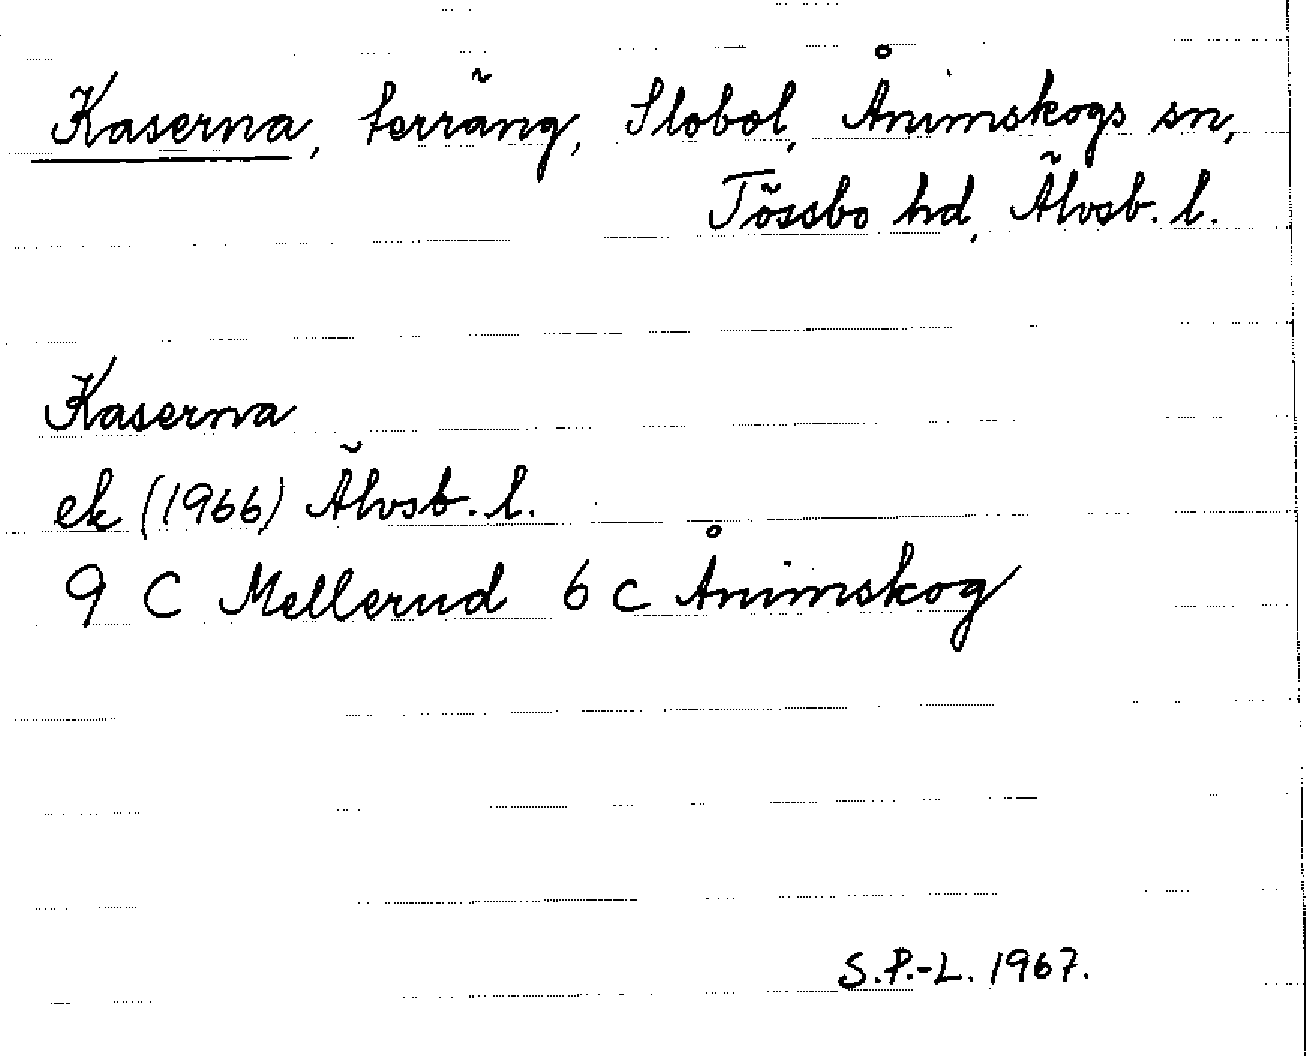 Kaserna, terräng, Slobol, Ånimskogs sn,
Tössbo hd, Älvsb. l.
Kaserna
ek (1966) Älvsb. l.
9 C Mellerud 6 c Ånimskog
S.P.-L. 1967.